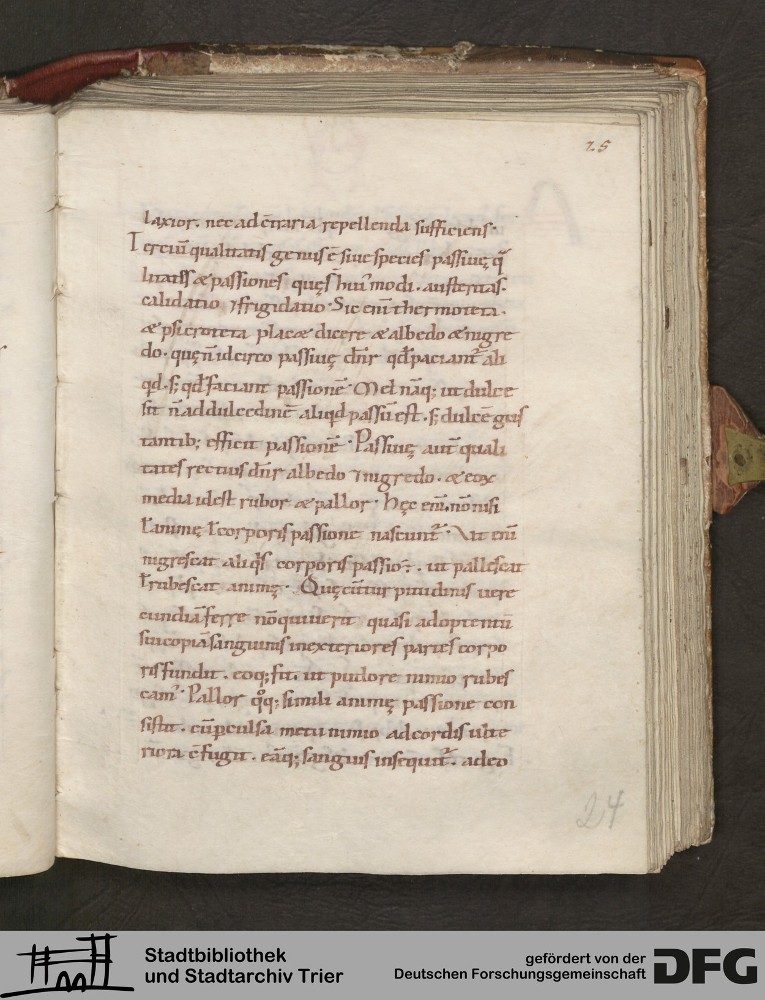 25
laxior. nec ad c̄traria repellenda sufficiens.
Terciū qualitatis genus ē siue species passiuę q̄
litates & passiones quęs hui᾽ modi. austeritas.
calidatio ⁊frigidatio. Sic enī thermoteta.
& psicroteta placæ dicere & albedo & nigre
do. quę n̄ idcirco passiuę dn̄r qd̄ paciant᾽ ali
qd. s; qd̄ faciant passionē. Mel nāq; ut dulce
sit n̄ ad dulcedinē aliqd passū est. s; dulcē gus
tantib; efficit passionē. Passiuę aut̄ quali
tates rectius dn̄r albedo ⁊nigredo. & eox
media idest rubor & pallor. Hęc enī. non nisi
ł animę ł corporis passione nascunt᾽. Vt enī
nigrescat aliq̄s corporis passio. ut pallescat
ł rubescat animę. Quę cū tur pitudinis uere
cundiā ferre nō quiuerit quasi ad optentū
sui copiā sanguinis in exteriores partes corpo
ris fundit. eoq; fit. ut pudore nimio rubes
cam᾽. Pallor qͦq; simili animę passione con
sistit. cū perculsa metu nimio ad cordis ulte
riora c̄fugit. eāq; sanguis insequit᾽. adeo
24
Stadtbibliothek
und Stadtarchiv Trier
gefördert von der
Deutschen Forschungsgemeinschaft
DFG